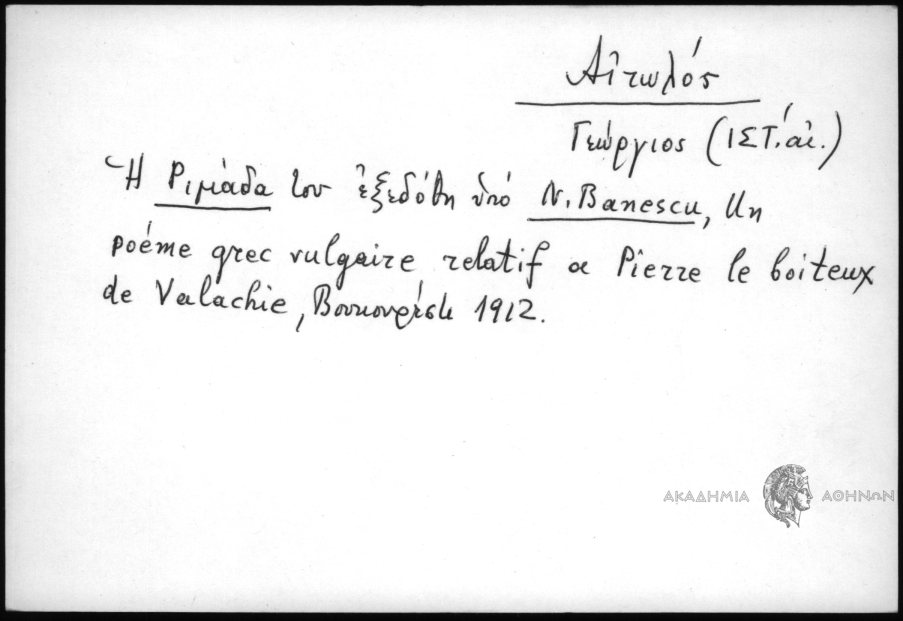 Αἰτωλός
Γεώργιος (ΙΣΤ΄. αἰ.)
Ἡ Ριμάδα του ἐξεδόθη ὑπό N. Banescu, Un
poéme grec vulgaire relatif a Pierre le boiteux
de Valachie, Βουκουρέστι 1912.
ΑΚΑΔΗΜΙΑ ΑΘΗΝΩΝ